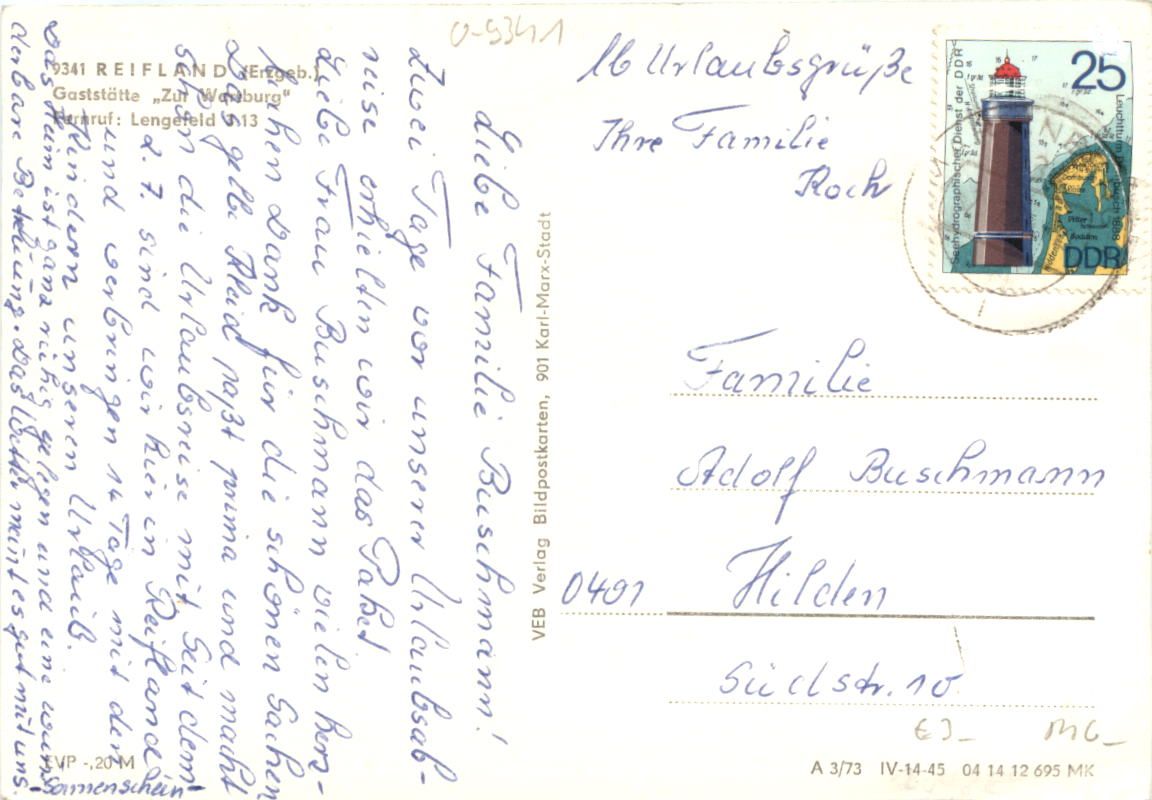 0-9341
9341 REIFLAND (Erzgeb.)
Gaststätte „Zur Wartburg"
Fernruf: Lengefeld 313
Liebe Familie Buschmann!
Zwei Tage vor unserer Urlaubsab-
reise erhielten wir das Paket.
Liebe Frau Buschmann vielen herz-
lichen Dank für die schönen Sachen
Das gelbe Kleid paßt prima und macht
schon die Urlaubsreise mit. Seit dem
2. 7. sind wir hier in Reifland
und verbringen 14 Tage mit den
Kindern unseren Urlaub.
Das Heim ist ganz ruhig gelegen und eine wun-
derbare Betreuung. Das Wetter meint es gut mit uns.
-Sonnenschein-
EVP -,20 M
VEB Verlag Bildpostkarten, 901 Karl-Marx-Stadt
Urlaubsgrüße
Ihre Familie
Koch
25
Seehydrographischer Dienst der DDR
Leuchtturm 1888
DDR
Familie
Adolf Buschmann
0401 Hilden
Südstr. 10
€3- MG-
A 3/73 IV-14-45 04 14 12 695 MK